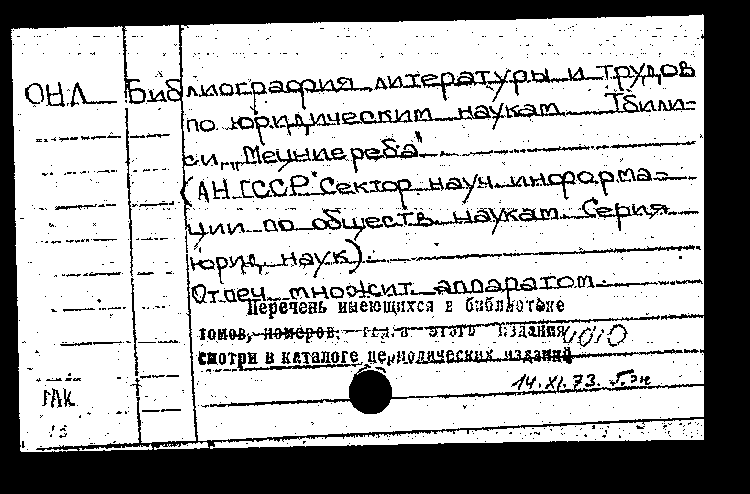 ОНЛ Библиография литературы и трудов
по юридическим наукам. Тбили-
си, „Мецниереба".
(АН ГССР. Сектор науч. информа-
ции по обществ. наукам. Серия
юрид. наук).
Отпеч. множит. аппаратом.
Перечень имеющихся в библиотеке
томов, номеров, год.в этого издания
смотри в каталоге периодических изданий
14.XI.73.